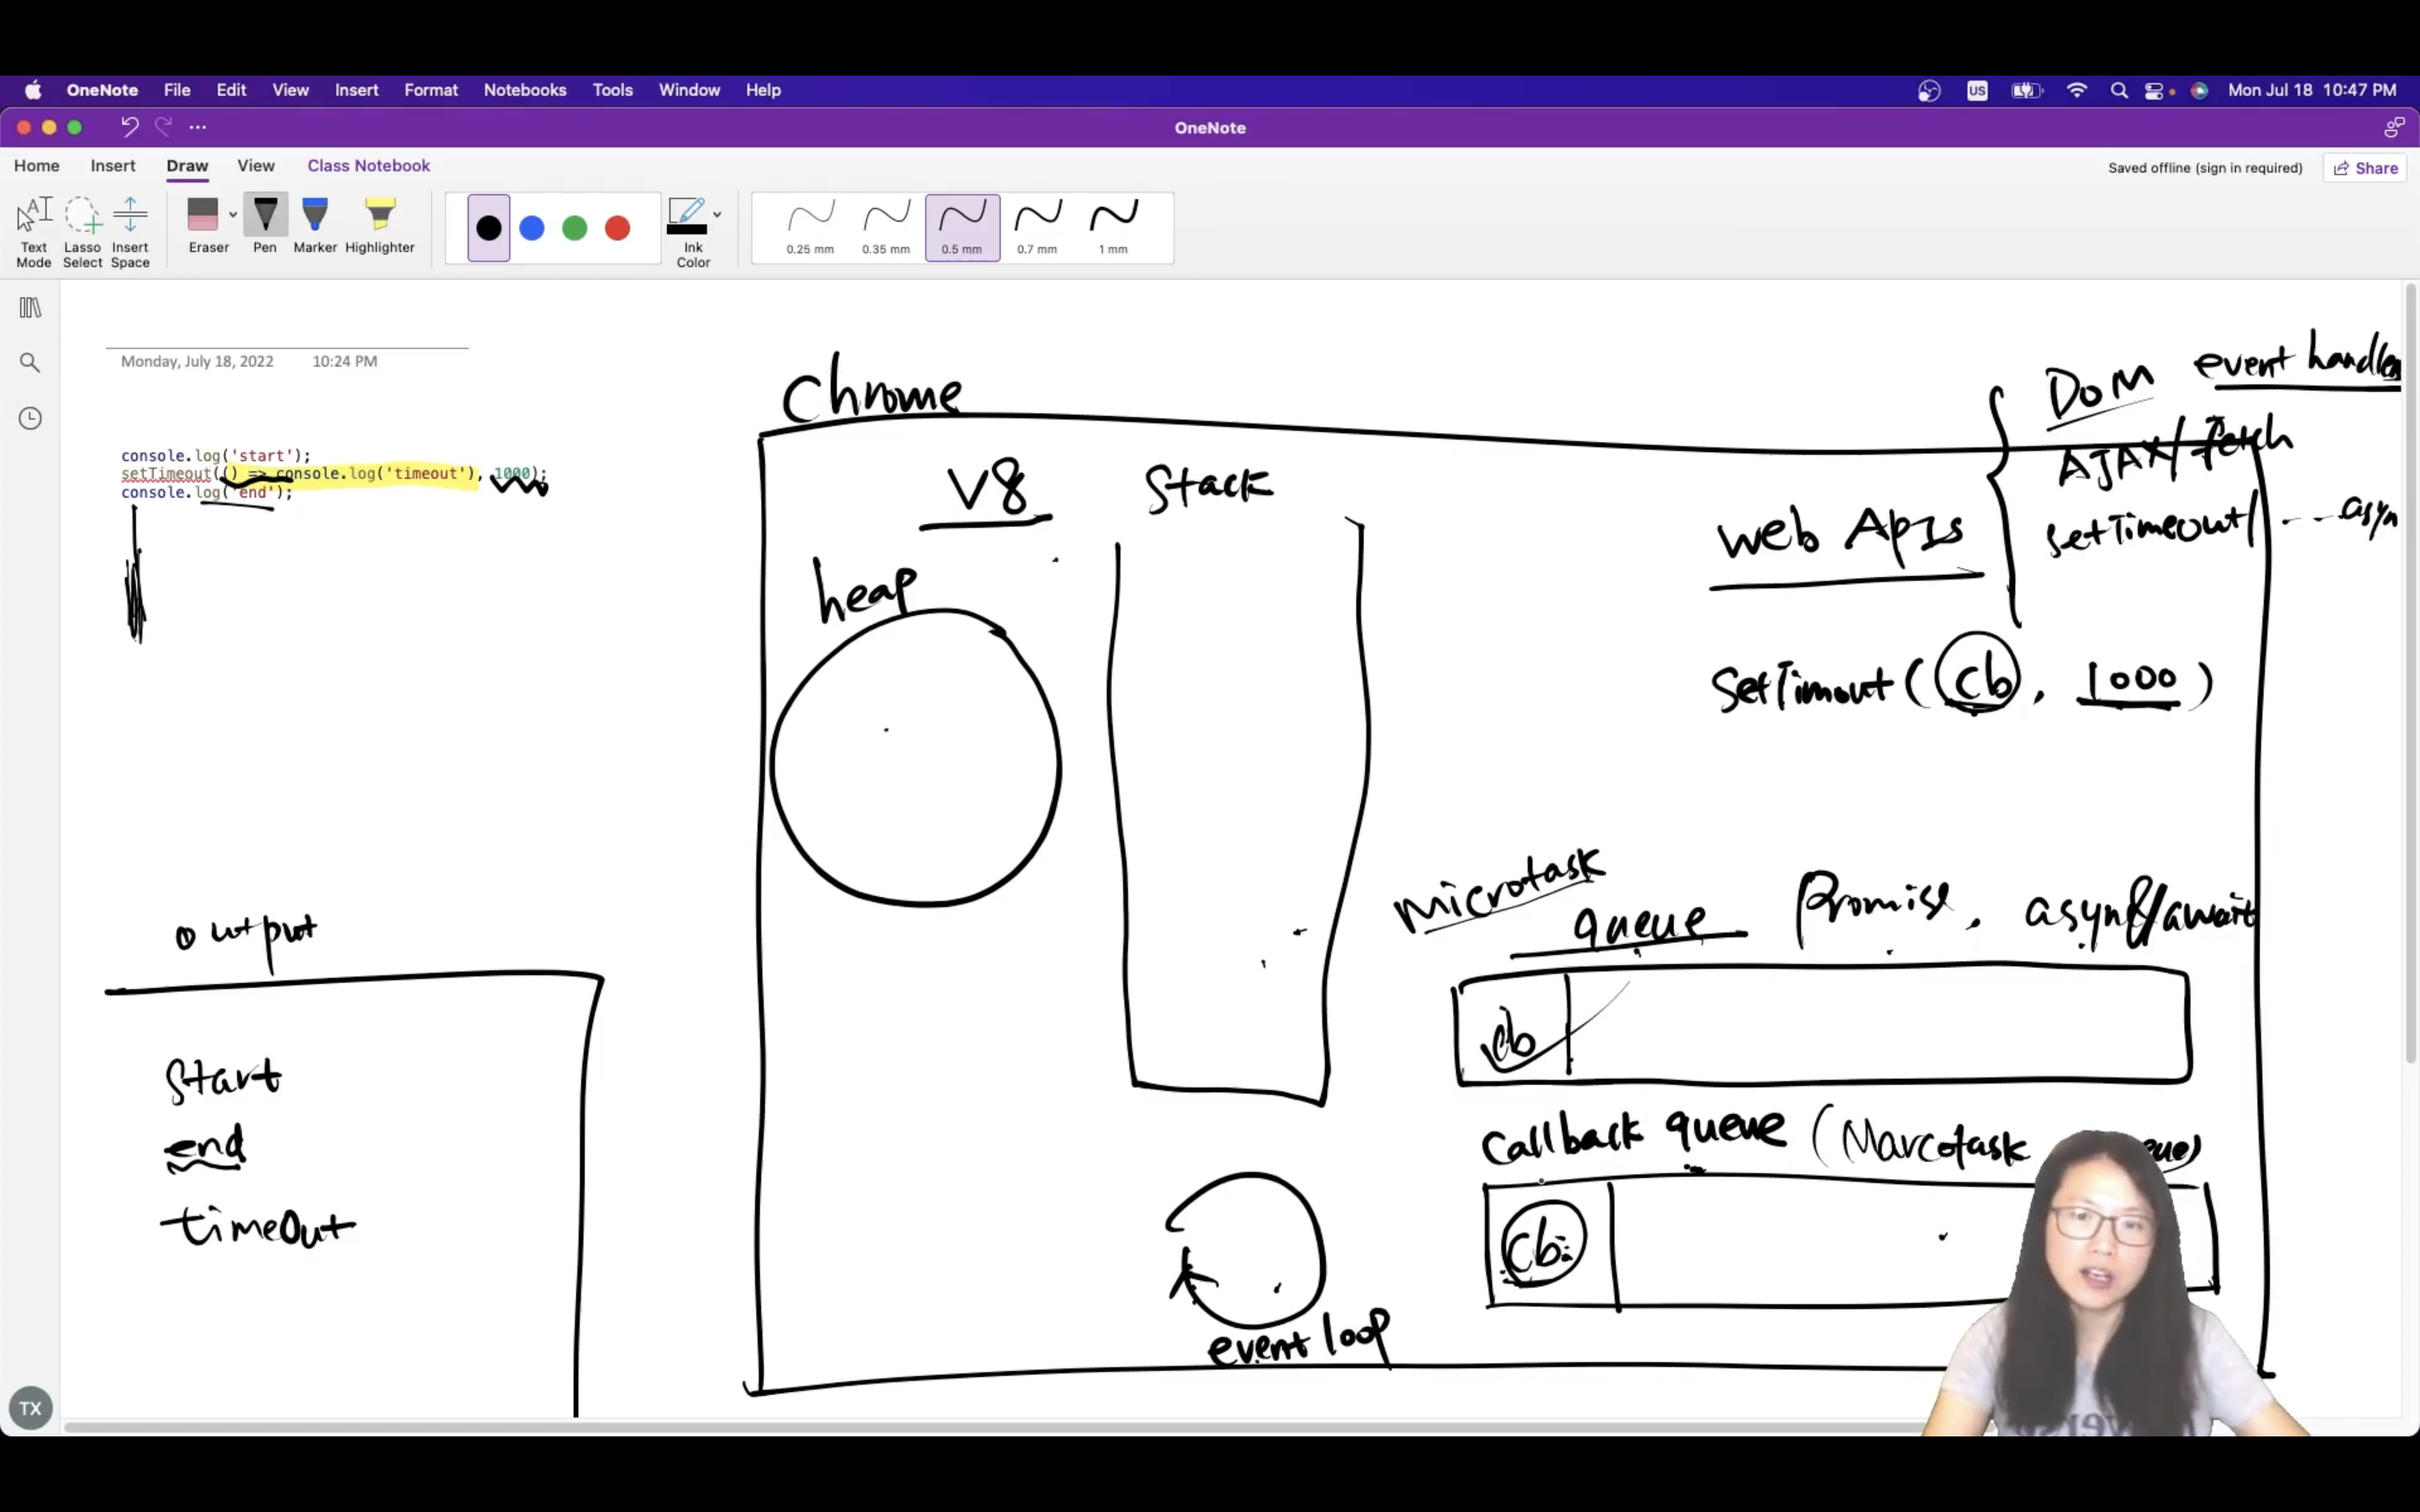 OneNote File Edit View Insert Format Notebooks Tools Window Help
US Mon Jul 18 10:47 PM
OneNote
Home Insert Draw View Class Notebook
Saved offline (sign in required) Share
Text Mode Lasso Select Insert Space Eraser Pen Marker Highlighter Ink Color
0.25 mm 0.35 mm 0.5 mm 0.7 mm 1 mm
Monday, July 18, 2022 10:24 PM
console.log('start');
setTimeout(() => console.log('timeout'), 1000);
console.log('end');
output
Start
end
timeOut
Chrome
V8 Stack
heap
web ApIs
DOM event handler
AJAX/fetch
SetTimeout/ ... asyn
SetTimout(cb, 1000)
microtask
queue Promise, async/await
cb
Callback queue (Marcotask
cb
event loop
TX